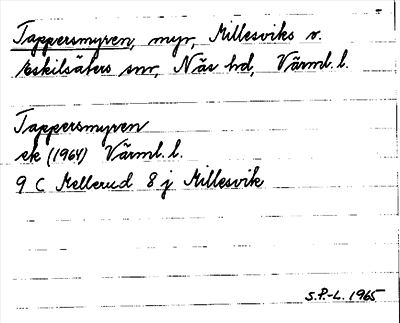 Tappersmyren, myr, Millesviks o.
Eskilsäters snr, Näs hd, Värml. l.
Tappersmyren
ek (1964) Värml. l.
9 C Mellerud 8 j Millesvik
S.P.-L. 1965